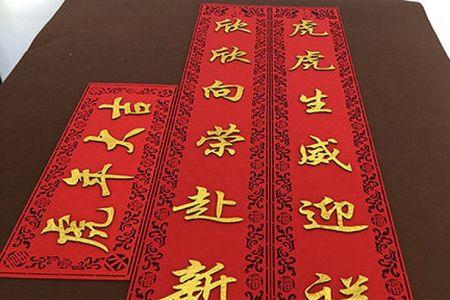 虎虎生威迎祥
欣欣向荣赴新
虎年大吉